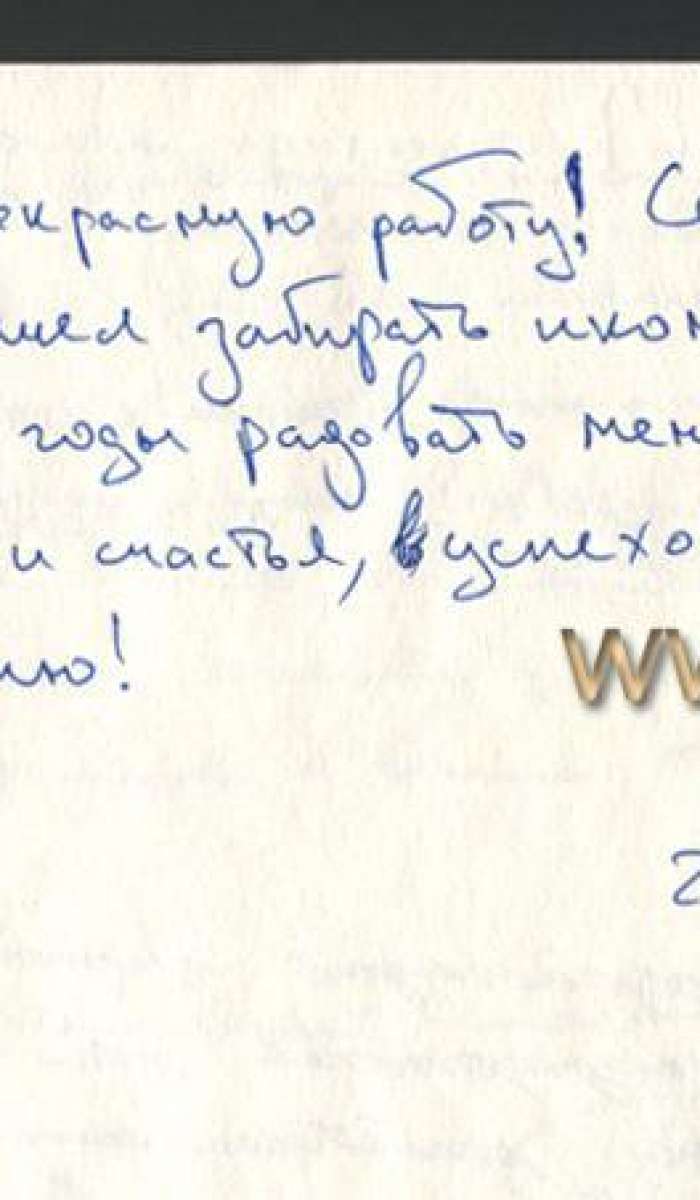 екрасную работу! Се
шел забирать икон
годы радовать мен
и счастья, в успехо
ию!
ww
2